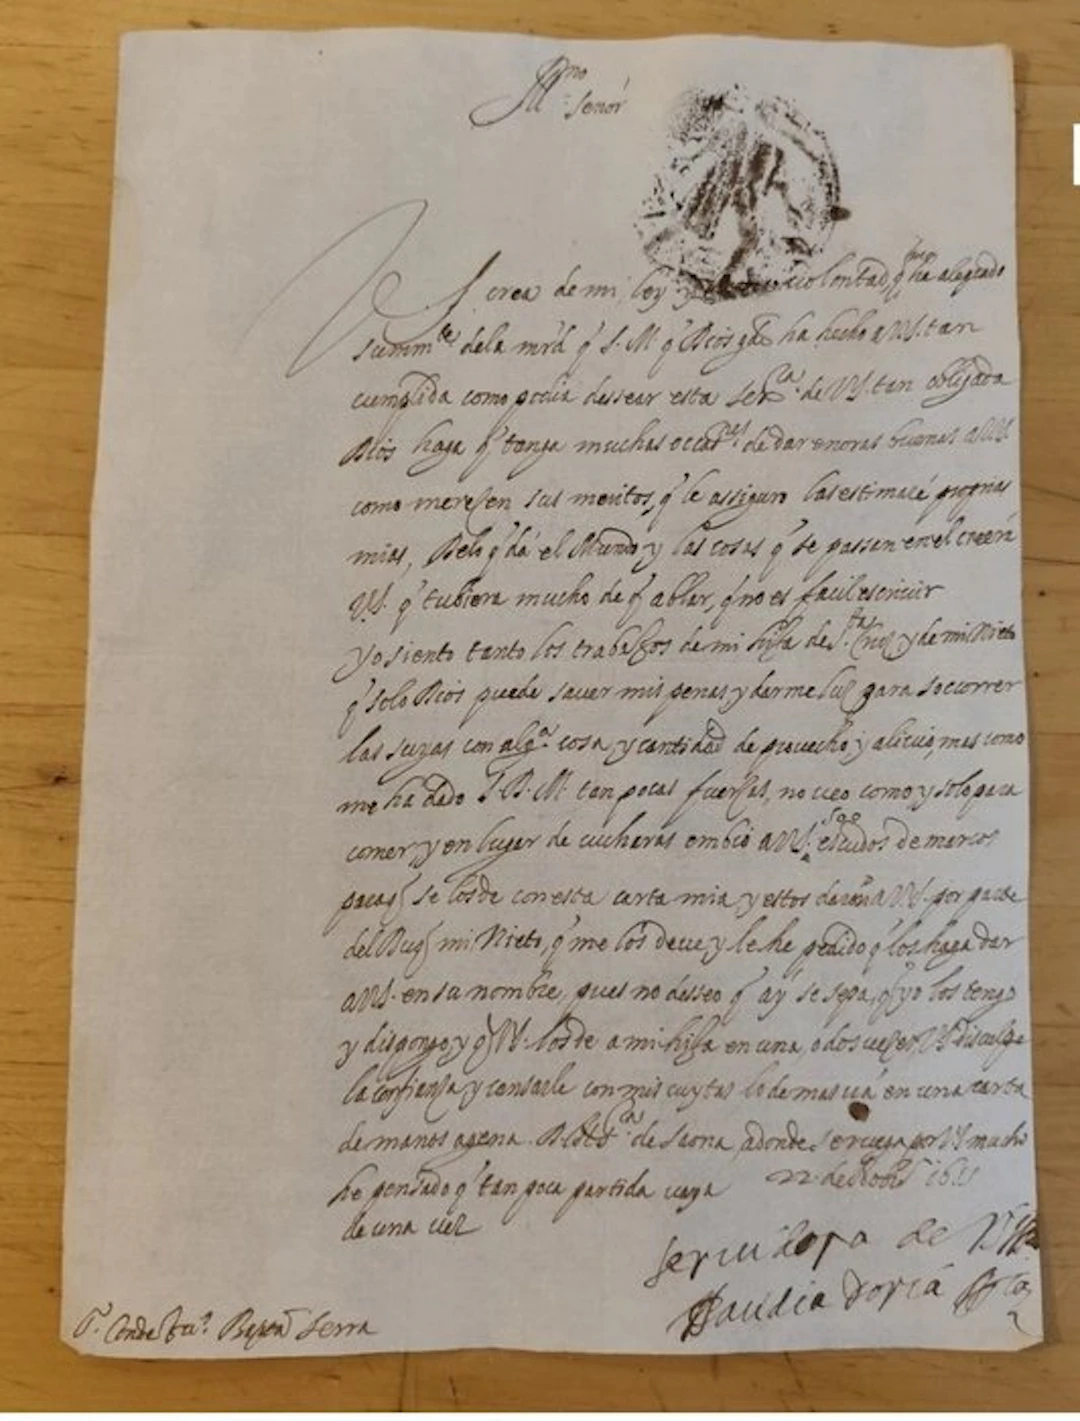 Ill.mo
Señor
V S. crea de mi ley y voluntad, q̃ me ha alegrado
summ.te de la mrd q̃ S. M. q̃ Dios gde ha hecho a V.S. tan
cumplida como podia dessear esta ser.ra de V.S. tan obligada
Dios haga q̃ tenga muchas occas.nes de dar enoras buenas a V.S.
como merescen sus meritos, q̃ le asseguro las estimaré proprias
mias, Delo q̃ dá el Mundo y las cosas q̃ se passan en el creerá
V.S. q̃ tubiera mucho de q̃ ablar, q̃ no es facil escriuir
yo siento tanto los trabaxos de mi hija de y de mi Nieto
q̃ solo Dios puede sauer mis penas y darme luz para soccorrer
las suyas con alg.a cosa, y cantidad de prouecho, y aliuio, mas como
me ha dado S. D. M. tan pocas fuerças, no veo como y solo para
comer, y en lugar de cucharas embio a V.S. 500 escudos de marcos
paraq̃ se los de con esta carta mia, y estos daran a V.S. por parte
del Duq̃ mi Nieto, q̃ me los deue, y le he pedido q̃ los haga dar
a V.S. en su nombre, pues no desseo q̃ ay se sepa, q̃ yo los tengo
y dispongo, y q̃ V.S. los de a mi hija en una, o dos vezes, V.S. disculpe
la confiança, y cansarle con mis cuytas lo demas uá en una carta
de manos agena. de Saona, adonde se ruega por V.S. mucho
he pensado q̃ tan poca partida vaya 22 de
de una vez
seruidora de V.S. Ill.ma
Plaudia Doria
S.r Conde Bap.ta Serra